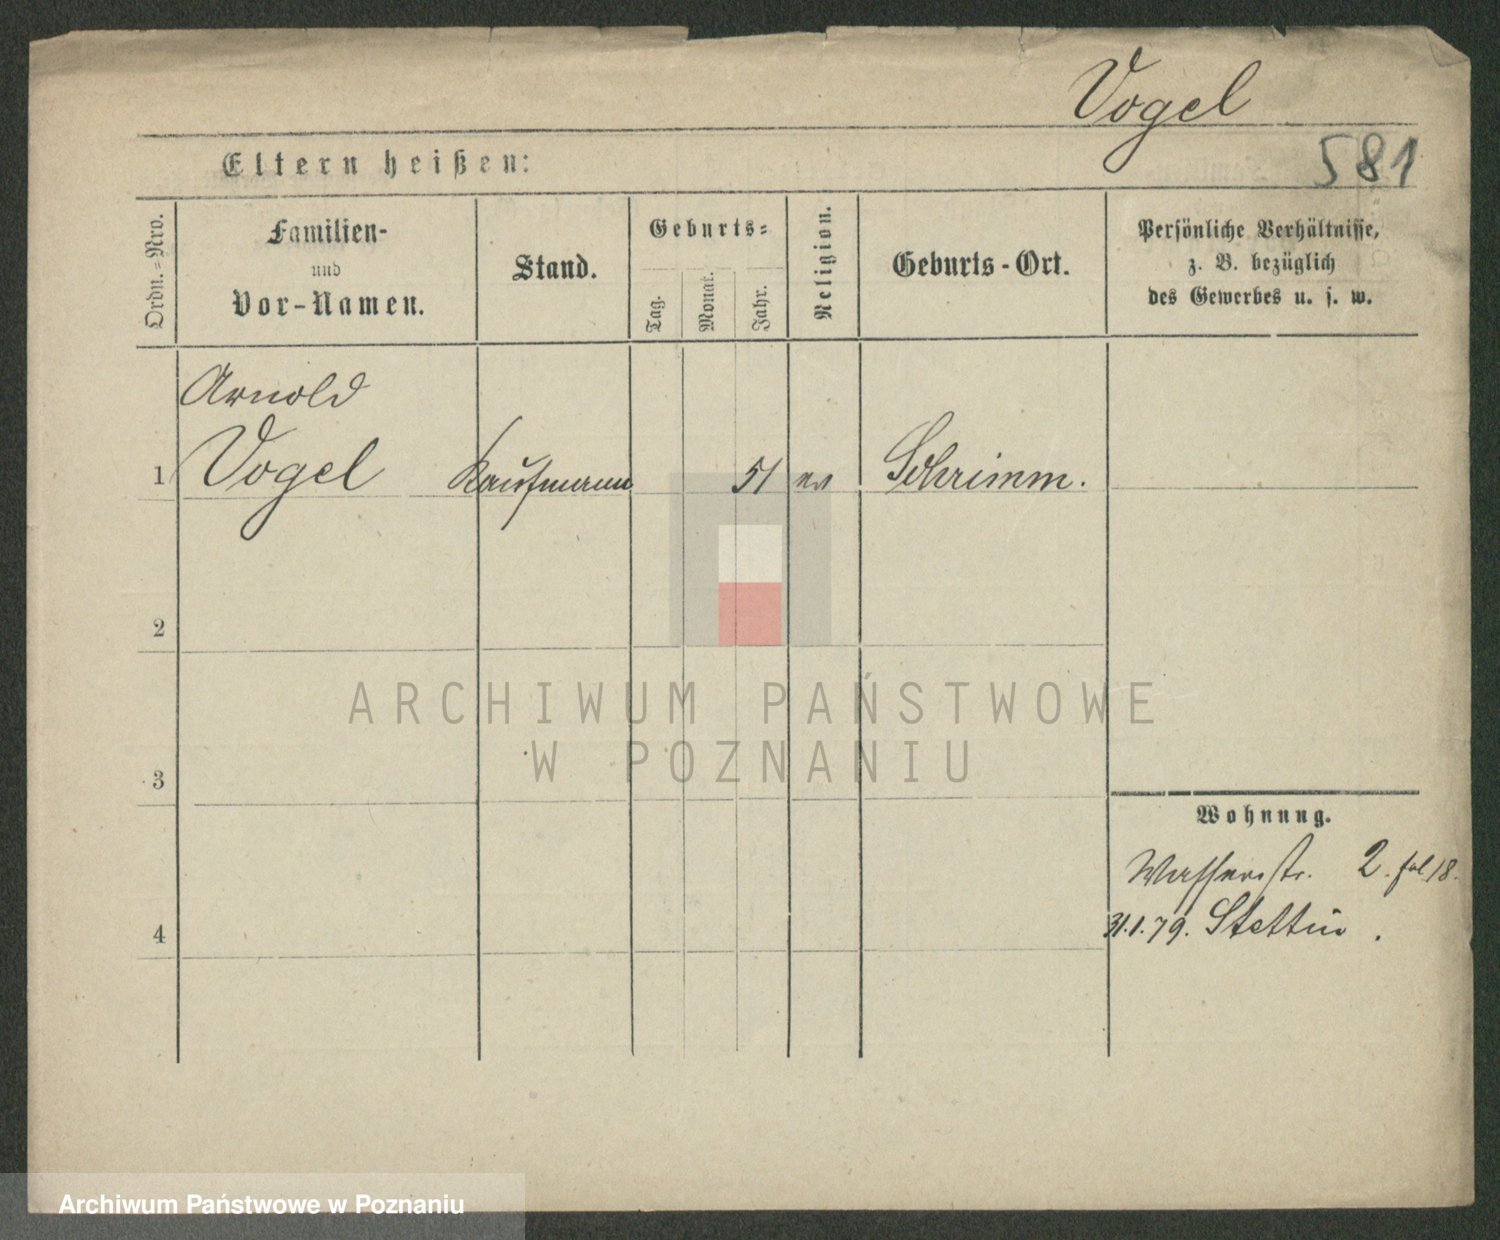 Vogel
581
Eltern heißen:
Ordn.=Nro.
Familien-
und
Vor-Namen.
Stand.
Geburts=
Tag.
Monat.
Jahr.
Religion.
Geburts-Ort.
Persönliche Verhältnisse,
z. B. bezüglich
des Gewerbes u. s. w.
Arnold
1 Vogel Kaufmann 51 ev Schrimm.
2
3
4
Wohnung.
Wasserstr. 2. fol 18.
31.1.79. Stettin.
ARCHIWUM PAŃSTWOWE
W POZNANIU
Archiwum Państwowe w Poznaniu